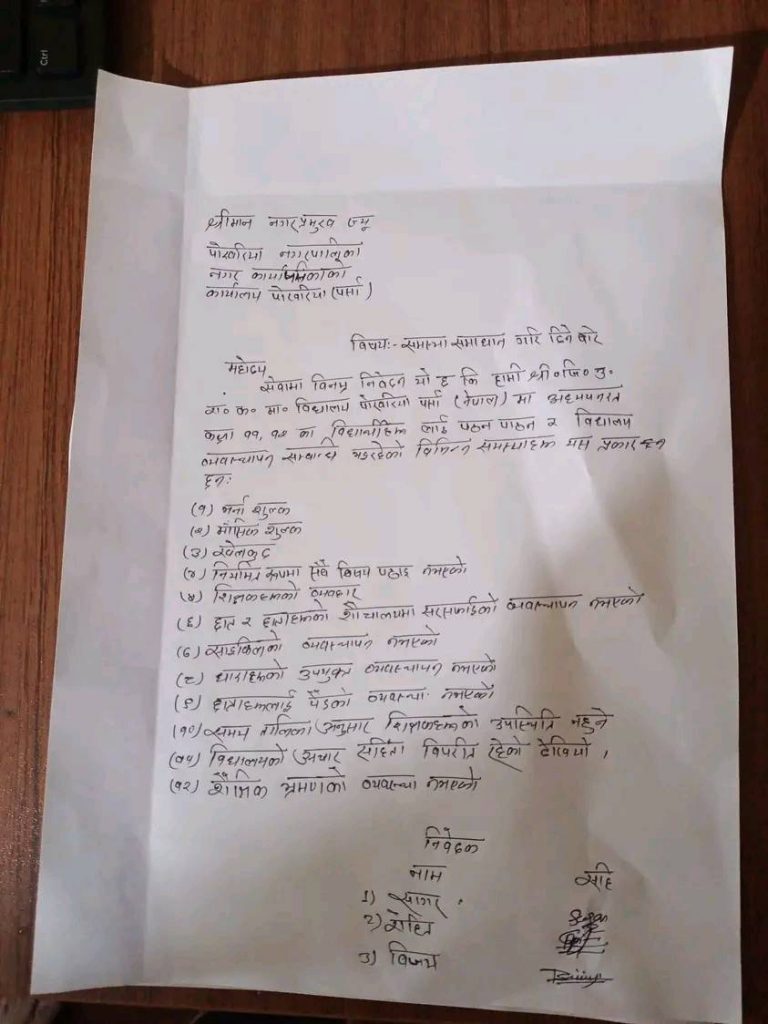 Ctrl
श्रीमान नगरप्रमुख ज्यू
पोखरिया नगरपालिका
नगर कार्यपालिकाको
कार्यालय पोखरिया (पर्सा)
विषय:- समस्या समाधान गरि दिने बारे
महोदय
सेवामा विनम्र निवेदन यो छ कि हामी श्री॰ जि॰ यु॰
रा॰ क॰ मा॰ विद्यालय पोखरिया पर्सा (नेपाल) मा अध्ययनरत
कक्षा ११, १२ का विद्यार्थीहरू लाई पठन पाठन र विद्यालय
व्यवस्थापन सम्बन्धि भइरहेको विभिन्न समस्याहरू यस प्रकार छन
छन:
(१) भर्ना शुल्क
(२) मासिक शुल्क
(३) खेलकुद
(४) नियमित रूपमा सबै विषय पढाइ नभएको
(५) शिक्षकहरूको व्यवहार
(६) छात्र र छात्राहरूको शौचालयमा सरसफाईको व्यवस्थापन नभएको
(७) साइकिलको व्यवस्थापन नभएको
(८) धाराहरूको उपयुक्त व्यवस्थापन नभएको
(९) छात्राहरूलाई पैडको व्यवस्था नभएको
(१०) समय तालिका अनुसार शिक्षकहरूको उपस्थिति नहुने
(११) विद्यालयको आचार संहिता विपरीत रहेको देखियो ।
(१२) शैक्षिक भ्रमणको व्यवस्था नभएको
निवेदक
नाम सहि
1) सागर Sagar
2) रोहित
3) विजय Bijay